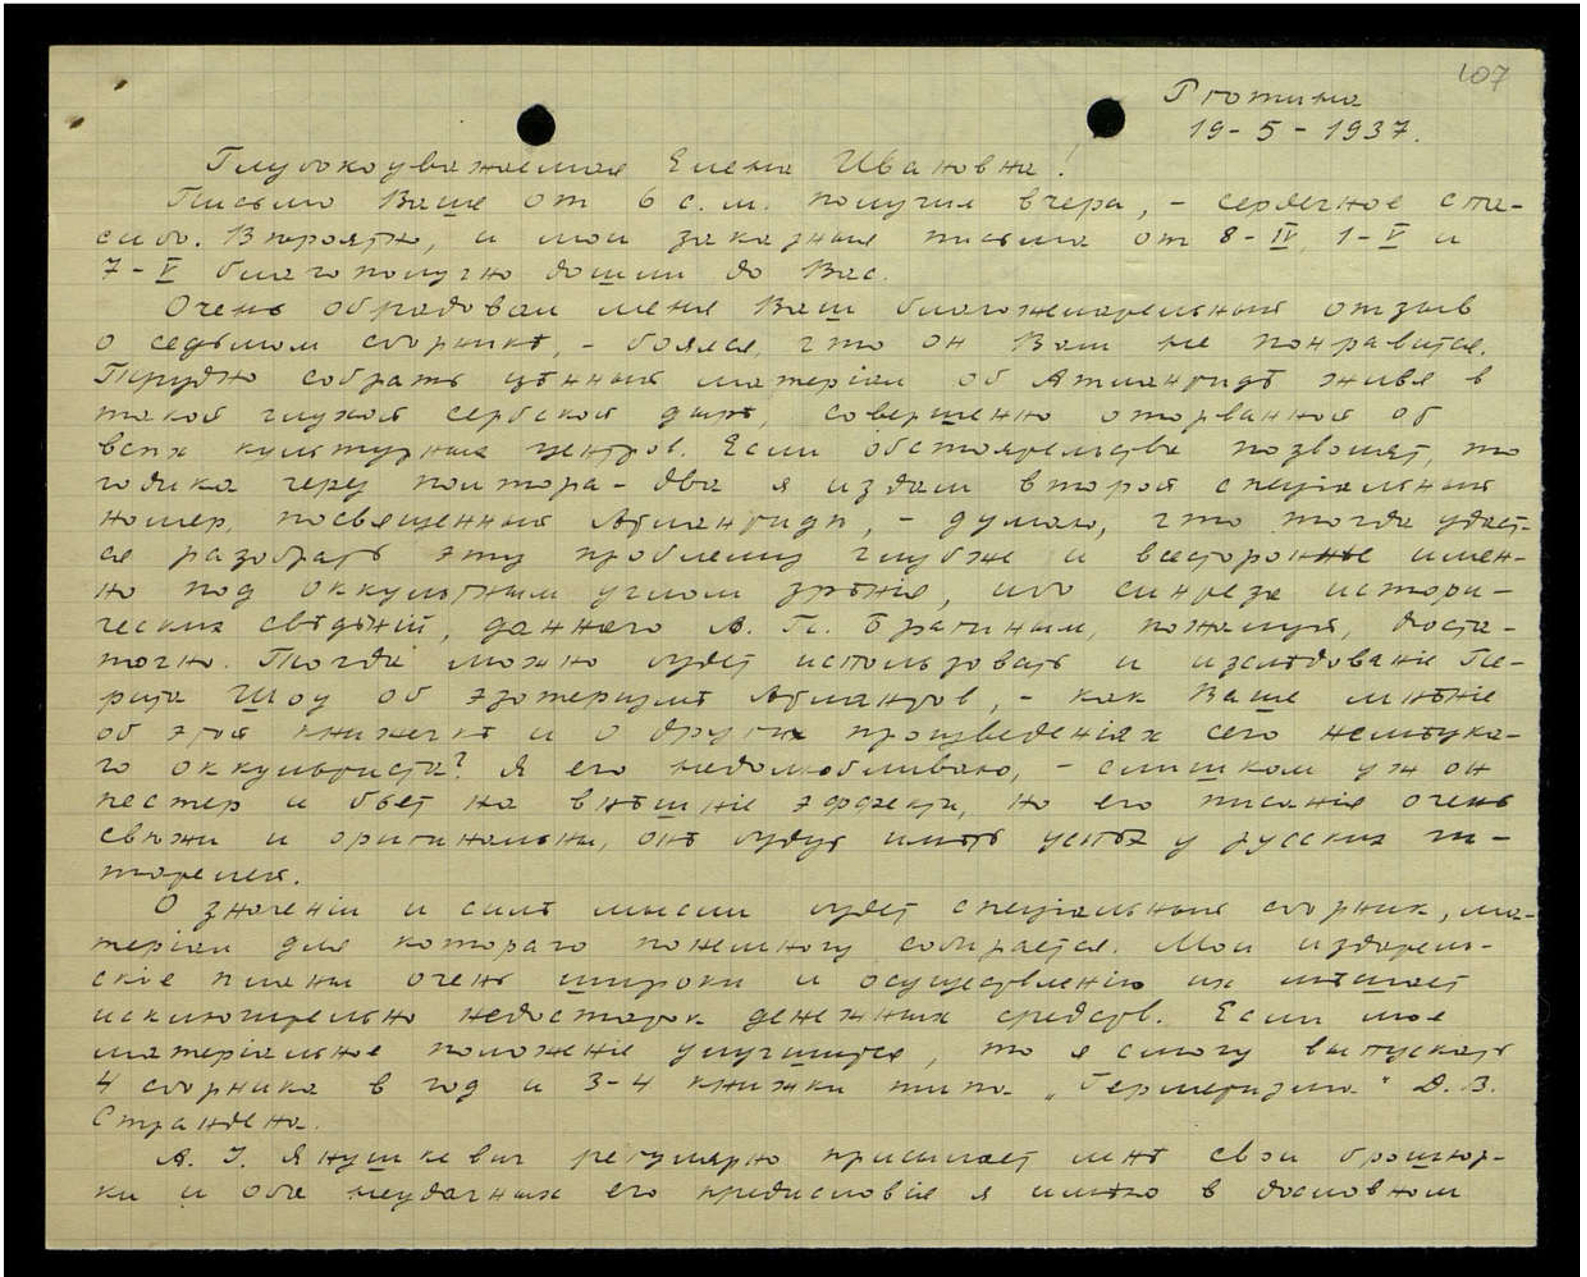 107
Рготина
19-5-1937.
Глубокоуважаемая Елена Ивановна!
Письмо Ваше от 6 с.м. получил вчера, - сердечное спа-
сибо. Вѣроятно, и мои заказныя письма от 8-IV, 1-V и
7-V благополучно дошли до Вас.
Очень обрадовал меня Ваш благожелательный отзыв
о седьмом сборникѣ, - боялся, что он Вам не понравится.
Трудно собрать цѣнный матеріал об Атлантидѣ живя в
такой глухой сербской дырѣ, совершенно оторванной от
всѣх культурных центров. Если обстоятельства позволят, то
годика через полтора-два я издам второй спеціальный
номер, посвященный Атлантидѣ, - думаю, что тогда удаст-
ся разобрать эту проблему глубже и всесторонне имен-
но под оккультным углом зрѣнія, ибо синтеза истори-
ческих свѣдѣній, даннаго А. П. Брагиным, пожалуй, доста-
точно. Тогда можно будет использовать и изслѣдованіе Пе-
рита Шоу об эзотеризмѣ Атлантов, - как Ваше мнѣніе
об этой книжечкѣ и о других произведеніях сего немѣцка-
го оккультиста? Я его недолюбливаю, - слишком уж он
пестер и бьет на внѣшніе эффекты, но его писанія очень
свѣжи и оригинальны, онѣ будут имѣть успѣх у русских чи-
тателей.
О значеніи и силѣ мысли будет спеціальный сборник, ма-
теріал для котораго понемногу собирается. Мои издатель-
скіе планы очень широки и осуществленію их мѣшает
исключительно недостаток денежных средств. Если мое
матеріальное положеніе улучшится, то я смогу выпускать
4 сборника в год и 3-4 книжки типа „Герметизма" Д.В.
Страндена.
А. І. Янушкевич регулярно присылает мнѣ свои брошюр-
ки и оба неудачных его предисловія я имѣю в дословном